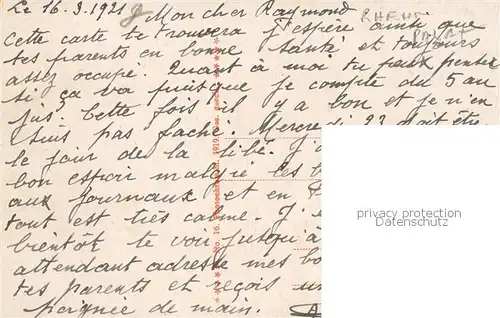 Le 16.3.1921 Mon cher Raymond
RHEN
PALAT
Cette carte te trouvera j'espère ainsi que
tes parents en bonne santé et toujours
assez occupé. Quant à moi tu peux penser
si ça va puisque je compte du 5 au
jus. Cette fois il y a bon et je n'en
suis pas faché. Mercredi 23 doit être
le jour de la libé. J'
bon espoir malgré les b
aux journaux et en
tout est très calme. J'
bientôt te voir jusqu'à
attendant adresse mes bo
tes parents et reçois un
poignée de main.
No. 16. 1919.
privacy protection
Datenschutz